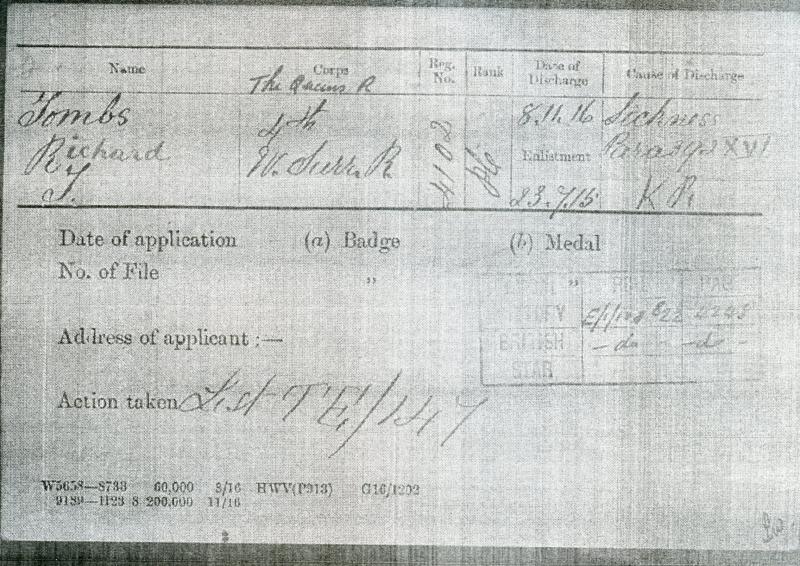 Name Corps Reg. No. Rank Date of Discharge Cause of Discharge
The Queens R
Tombs 4th 4102 Pte 8.11.16 Sickness
Richard W. Surr. R. Enlistment Para 392 XVI
J. 23.7.15 K R
Date of application (a) Badge (b) Medal
No. of File " "
VICTORY E/1/102 B22 4243
Address of applicant :— BRITISH - do - - do -
STAR
Action taken List TE/147
W5658—8733 60,000 8/16 HWV(P313) G16/1202
9189—1123 8 200,000 11/16